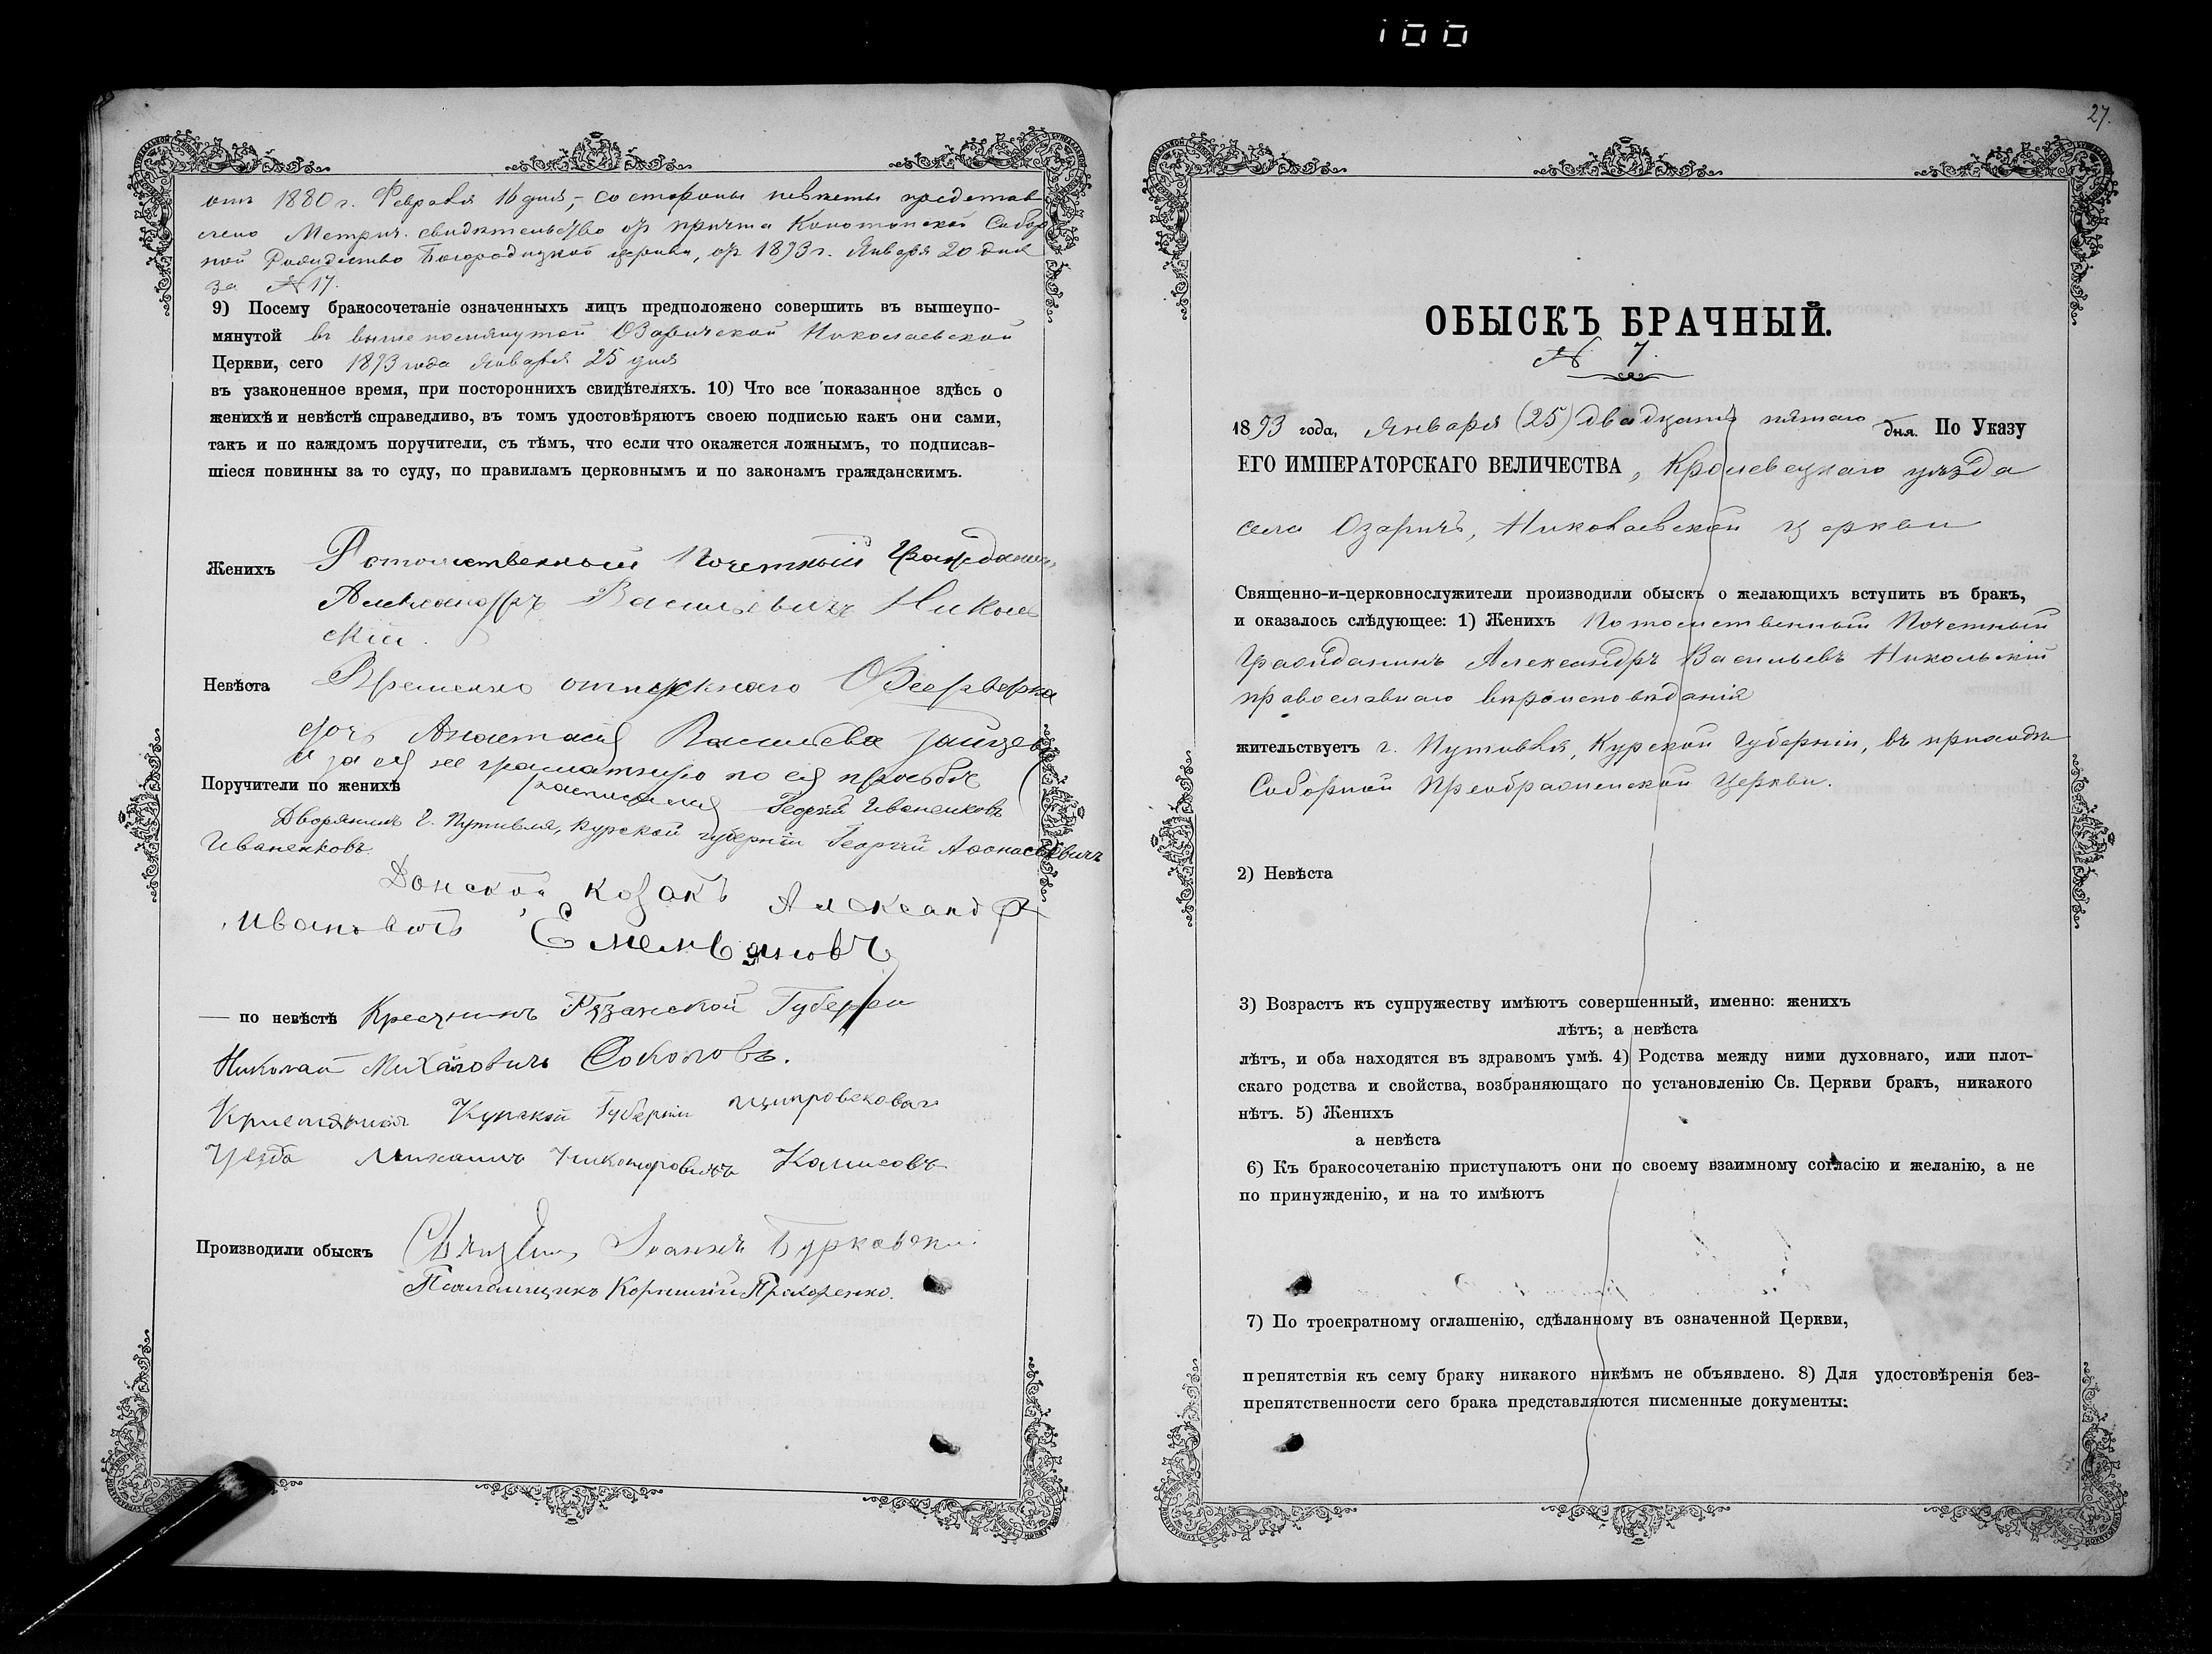 100
отъ 1880 г. Февраля 16 дня,- со стороны невѣсты представ
лено Метрич. свидѣтельство отъ причта Конотопской Собор
ной Рождество Богородицкой церкви, отъ 1893 г. Января 20 дня
за № 17.
9) Посему бракосочетаніе означенныхъ лицъ предположено совершить въ вышеупо-
мянутой въ вышепомянутой Озаричской Николаевской
Церкви, сего 1893 года Января 25 дня
въ узаконенное время, при постороннихъ свидѣтеляхъ. 10) Что все показанное здѣсь о
женихѣ и невѣстѣ справедливо, въ томъ удостовѣряютъ своею подписью какъ они сами,
такъ и по каждомъ поручители, съ тѣмъ, что если что окажется ложнымъ, то подписав-
шіеся повинны за то суду, по правиламъ церковнымъ и по законамъ гражданскимъ.
Женихъ Потомственный Почетный Гражданинъ
Александръ Васильевичъ Николь
скій.
Невѣста Временно отпускнаго Фееверка
дочь Анастасія Васильева Зайцева
а за ея не грамотную по ея прозьбѣ
Поручители по женихѣ росписался Георгій Иваненковъ
Дворянинъ г. Путивля, Курской губерніи Георгій Афонасьевичъ
Иваненковъ.
Донской козакъ Александръ
Ивановичъ Емельяновъ
— по невѣстѣ Рязанской Губерніи
Николай Михаловичъ Соколовъ.
Курской Губерніи
Уезда Михаилъ
Производили обыскъ Священ. Іоаннъ Бурковскій
Псаломщикъ Корнилій Прохоренко.
27.
ОБЫСКЪ БРАЧНЫЙ.
№ 7.
1893 года, Января (25) двадцать пятаго дня. По Указу
ЕГО ИМПЕРАТОРСКАГО ВЕЛИЧЕСТВА, Кролевецкаго уѣзда
села Озаричъ, Николаевской церкви
Священно-и-церковнослужители производили обыскъ о желающихъ вступить въ бракъ,
и оказалось слѣдующее: 1) Женихъ Потомственный Почетный
Гражданинъ Александръ Васильевъ Никольскій
православнаго вѣроисповѣданія
жительствуетъ г. Путивля, Курской Губерніи, въ приходѣ
Соборной Преображенской Церкви.
2) Невѣста
3) Возрастъ къ супружеству имѣютъ совершенный, именно: женихъ
лѣтъ; а невѣста
лѣтъ, и оба находятся въ здравомъ умѣ. 4) Родства между ними духовнаго, или плот-
скаго родства и свойства, возбраняющаго по установленію Св. Церкви бракъ, никакого
нѣтъ. 5) Женихъ
а невѣста
6) Къ бракосочетанію приступаютъ они по своему взаимному согласію и желанію, а не
по принужденію, и на то имѣютъ
7) По троекратному оглашенію, сдѣланному въ означенной Церкви,
препятствія къ сему браку никакого никѣмъ не объявлено. 8) Для удостовѣренія без-
препятственности сего брака представляются писменные документы: